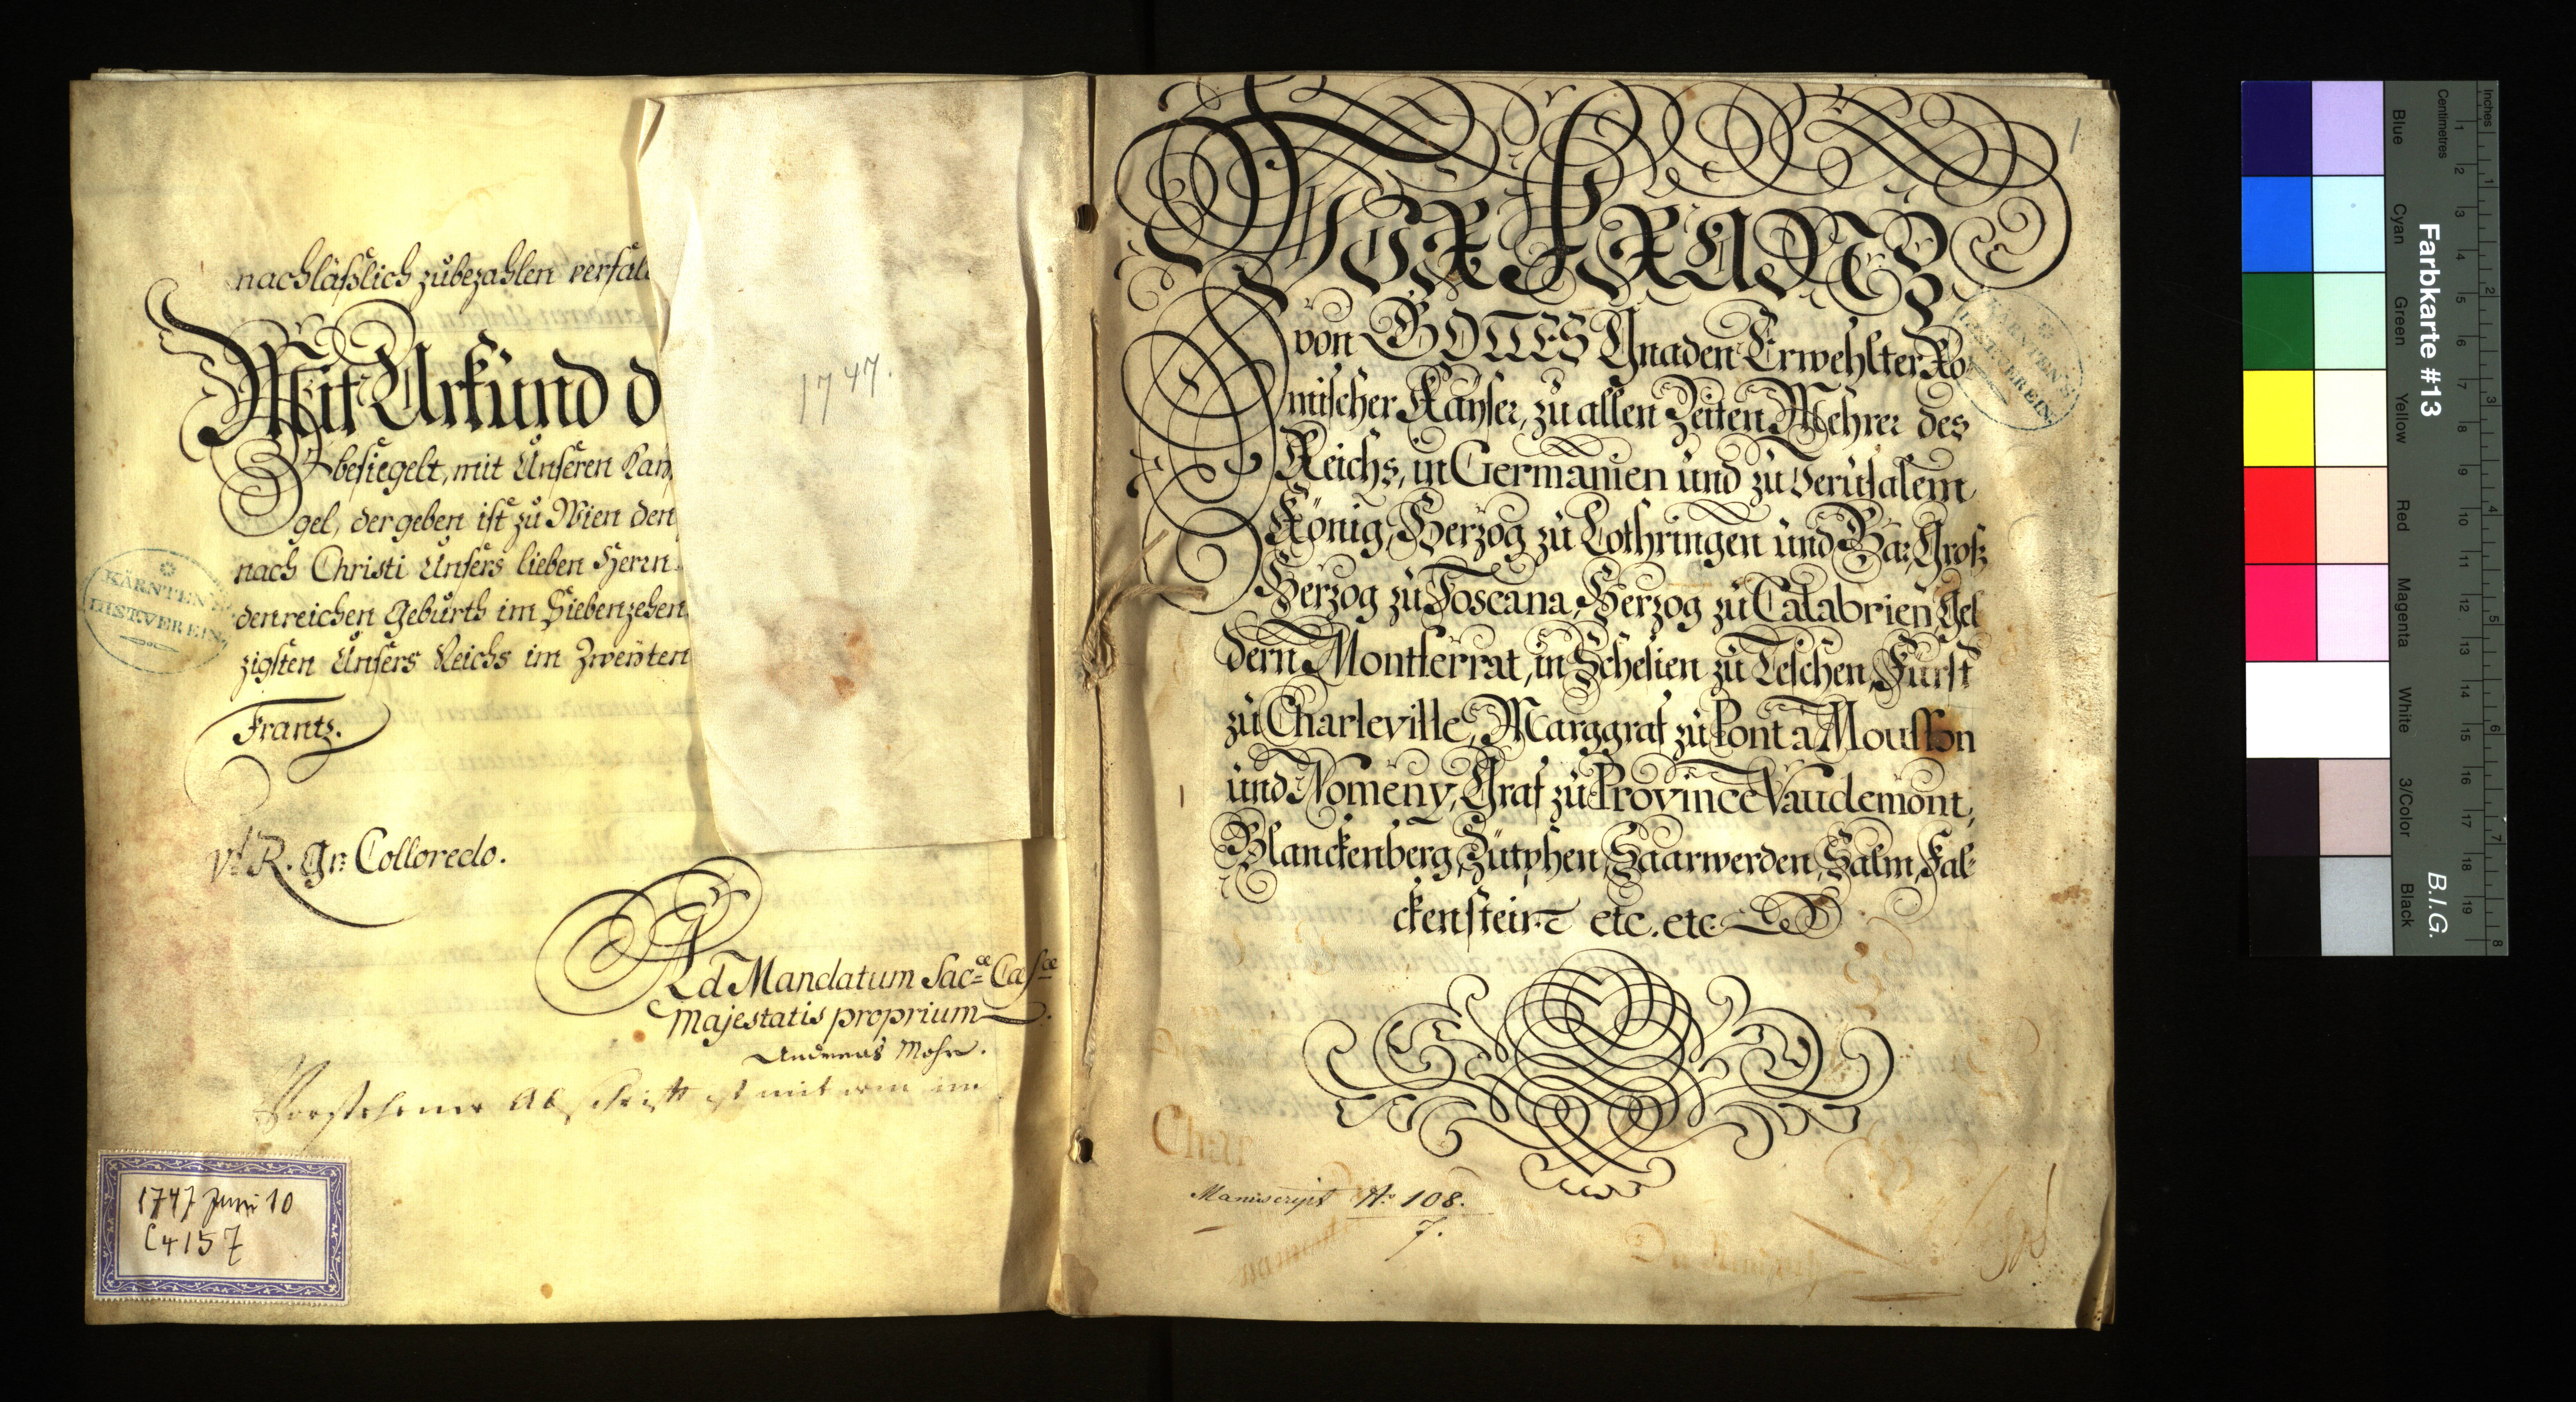 nachläßlich zubezahlen verfal
Mit Urkund d
besiegelt, mit Unseren Kay
gel, der geben ist zu Wien den
nach Christi Unsers lieben Herrn
denreichen Geburth im Siebenzehen
zigsten Unsers Reichs im Zweÿten
Frantz.
Vt R. Gr: Colloredo.
Ad Mandatum Sacæ Cæsæ
Majestatis proprium
Andreas Mohr.
Vorstehende Abschrift ist mit dem im
KÄRNTEN'S
HIST. VEREIN
1747 Juni 10
C 4157
1747.
1
WIR FRANTZ
von GOTTES Gnaden Erwehlter Rö
mischer Kaÿser, zu allen Zeiten Mehrer des
Reichs, in Germanien und zu Jerusalem
König, Herzog zu Lothringen und Bar, Groß
Herzog zu Toscana, Herzog zu Calabrien, Gel
dern, Montferrat, in Schlesien zu Teschen, Fürst
zu Charleville, Marggraf zu Pont à Mousson
und Nomeny, Graf zu Province, Vaudemont,
Blanckenberg, Zütphen, Saarwerden, Salm, Fal-
ckenstein etc. etc.
KÄRNTEN'S
HIST. VEREIN
Char
Manuscript No 108.
7.
Inches
Centimetres
1 2 3 4 5 6 7 8
1 2 3 4 5 6 7 8 9 10 11 12 13 14 15 16 17 18 19
Farbkarte #13
B.I.G.
Blue
Cyan
Green
Yellow
Red
Magenta
White
3/Color
Black